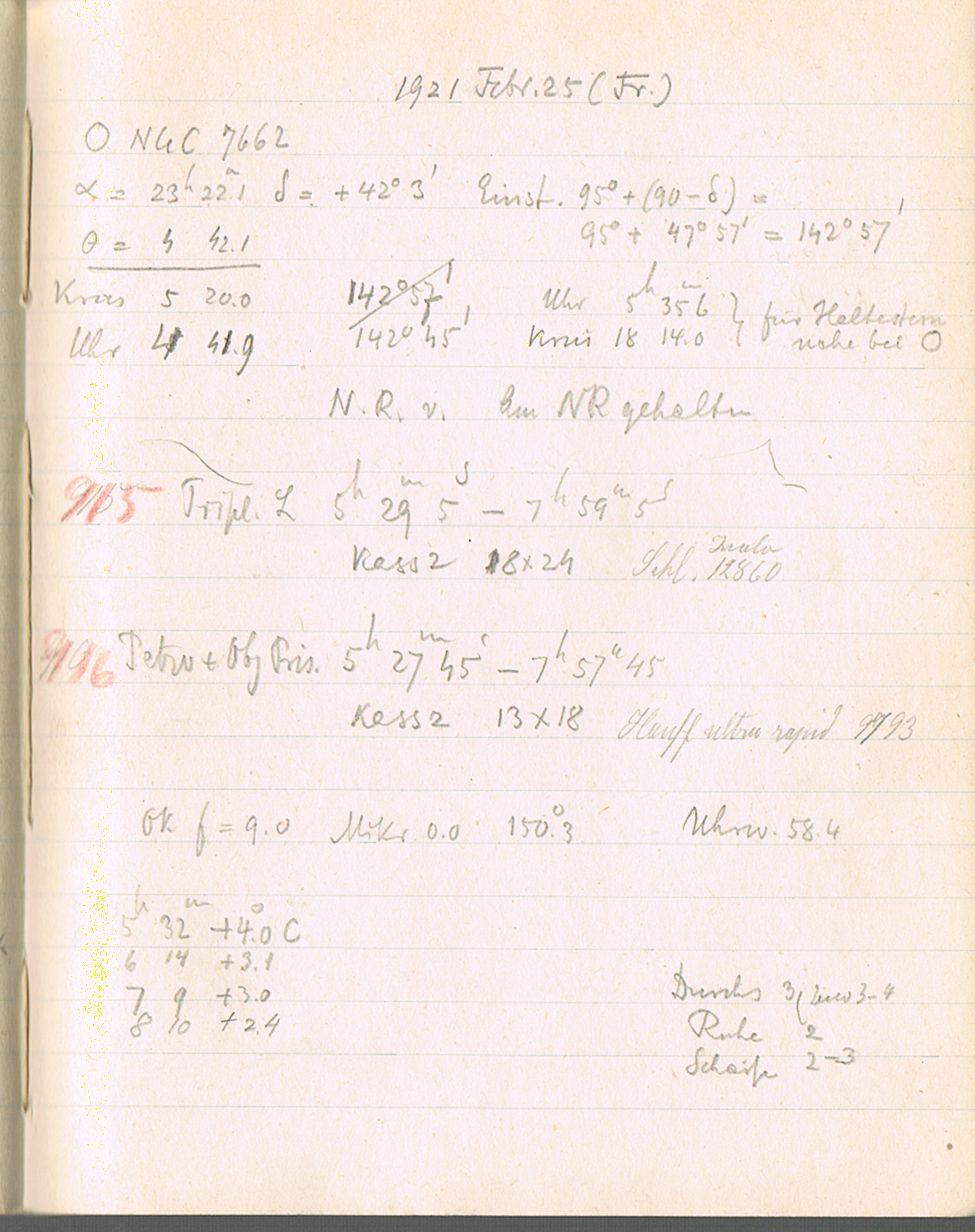 1921 Febr. 25 (Fr.)
O NGC 7662
α = 23h 22m.1 δ = +42° 3' Einst. 95° + (90-δ) =
θ = 4 42.1 95° + 47° 57' = 142° 57'
Kreis 5 20.0 142° 57' Uhr 5h 35m6 } für Haltestern
Uhr 4 41.9 142° 45' Kreis 18 14.0 } nahe bei O
N.R. v. Am NR gehalten
Tripl. L 5h 29m 5s – 7h 59m 5s
Kass 2 18×24 Schl. 12860
9196 Petzv + Obj Pris. 5h 27m 45s – 7h 57m 45
Kass 2 13×18 Hauff ultra rapid 9793
Ok f = 9.0 Mikr 0.0 150°.3 Uhrw. 58.4
5h 32m +4°.0 C
6 14 +3.1
7 9 +3.0
8 10 +2.4
Durchs 3, 3-4
Ruhe 2
Schärfe 2-3